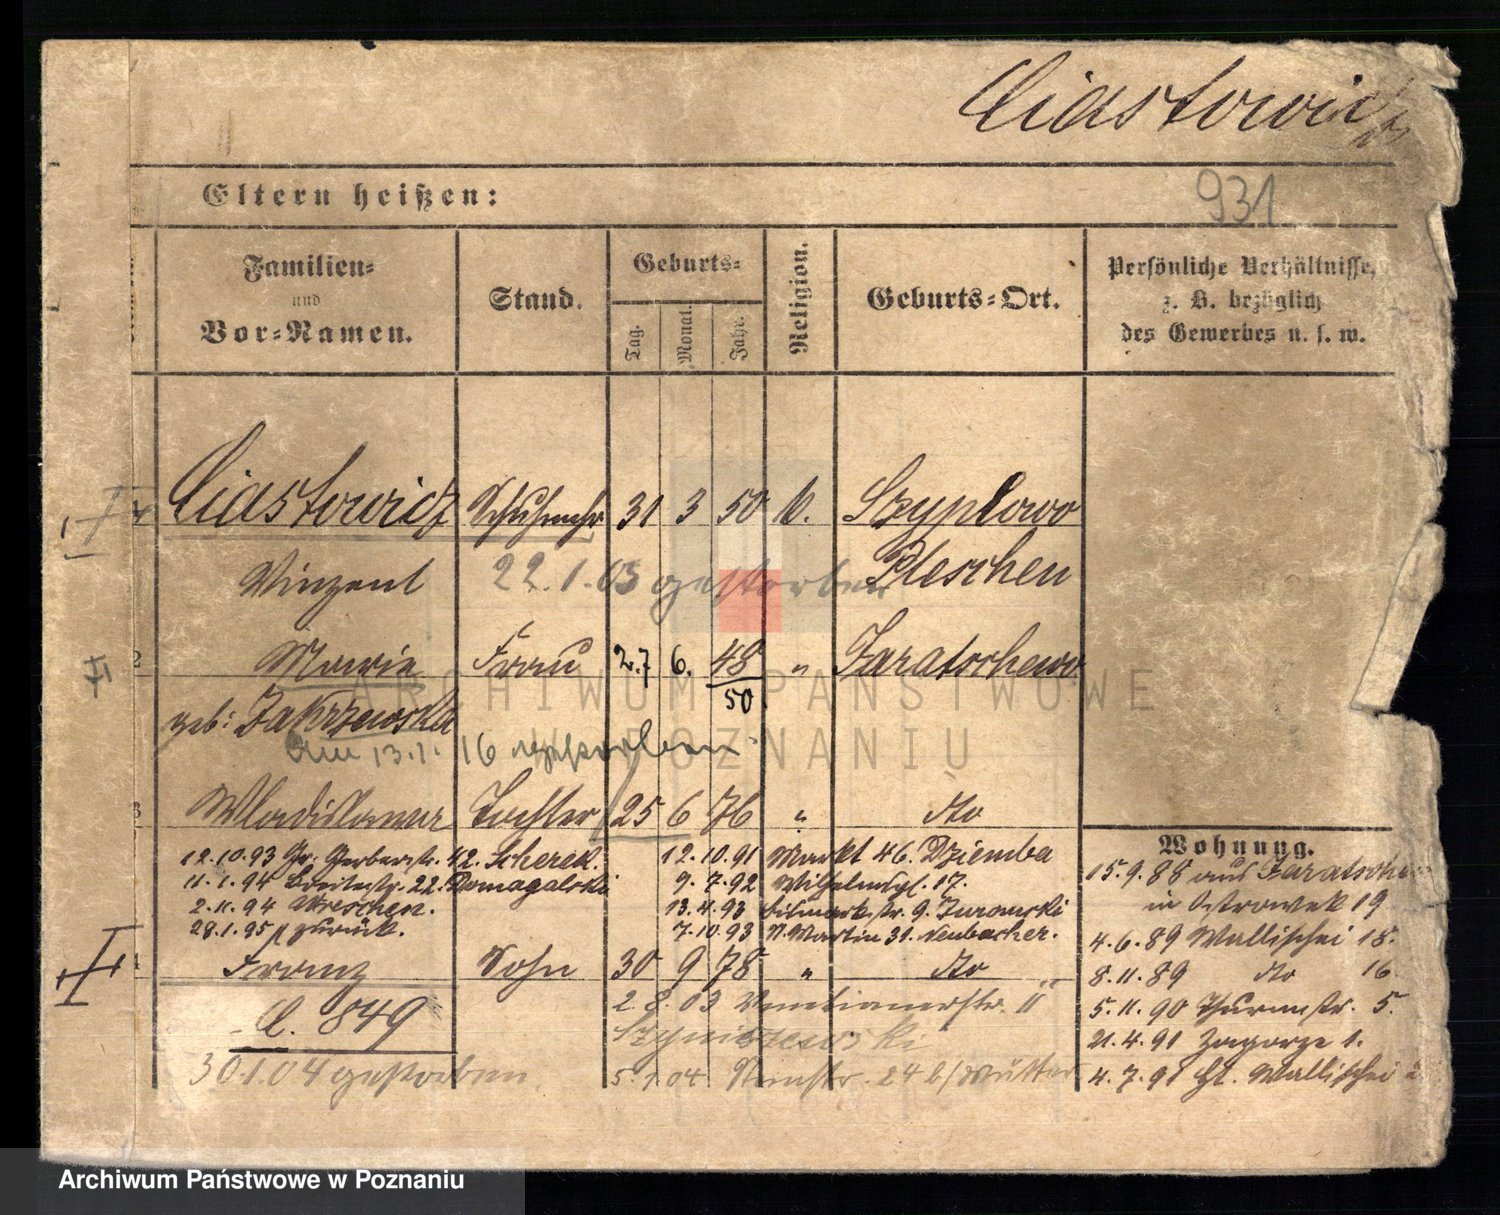 Ciastowicz
931
Eltern heißen:
Familien= und Vor=Namen.
Stand.
Geburts=
Tag.
Monat.
Jahr.
Religion.
Geburts=Ort.
Persönliche Verhältnisse,
z. B. bezüglich
des Gewerbes u. s. w.
Ciastowicz Schuhmchr 31 3 50 k. Szyplowo
Vinzent 22.1.03 gestorben Pleschen
2 Marie Frau 27 6. 48 " Zaratschewo
50
geb: Zakrzewska
Am 13.1.16 gestorben
3 Wladislawa Tochter 25 6 76 " dto
12.10.93 Gr. Gerberstr. 42. Scherek.
11.1.94 Breitestr. 22. Domagalski
2.11.94 Wreschen.
28.1.95 zurück.
12.10.91 Markt 46. Dziemba
9.7.92 Wilhelmspl. 17.
13.4.93 Bismarckstr. 9. Jurowski
7.10.93 St. Martin 31. Neubacher.
4 Franz Sohn 30 9 78 " dto
C. 849
30.1.04 gestorben
2.8.03 Venetianerstr. 11
Szymiczewski
5.1.04 24 b/Mutter
Wohnung.
15.9.88 aus Zaratschewo
in Ostrowek 19
4.6.89 Wallischei 18.
8.11.89 dto 16
5.11.90 Thurmstr. 5.
21.4.91 Zagorze 1.
4.7.91 Wallischei
ARCHIWUM PAŃSTWOWE
W POZNANIU
Archiwum Państwowe w Poznaniu